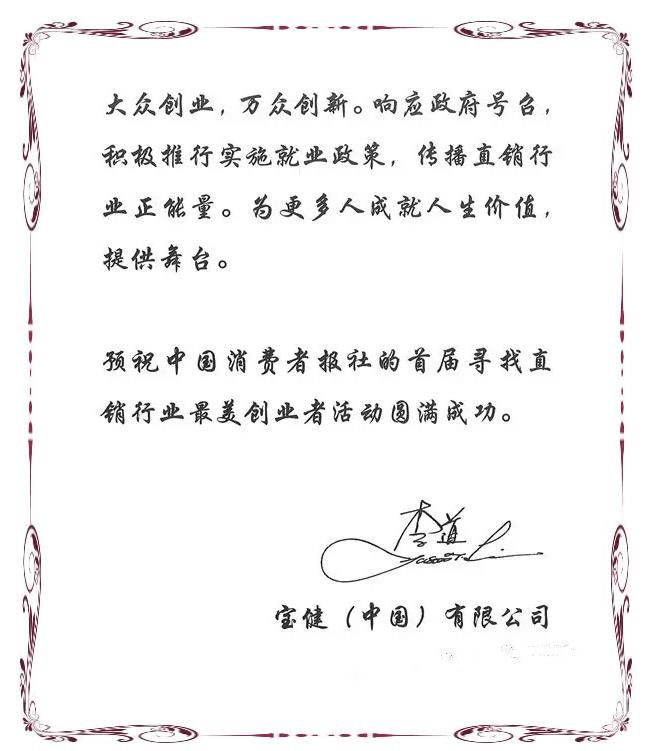 大众创业，万众创新。响应政府号召，
积极推行实施就业政策，传播直销行
业正能量。为更多人成就人生价值，
提供舞台。
预祝中国消费者报社的首届寻找直
销行业最美创业者活动圆满成功。
李道
宝健（中国）有限公司